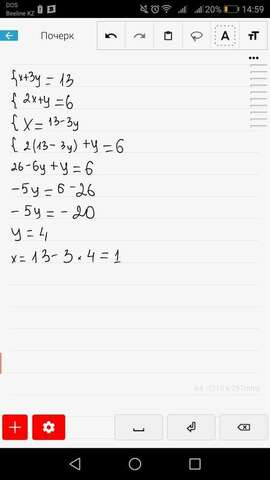 DOS
Beeline KZ
20% 14:59
Почерк
A
тТ
{x+3y=13
{2x+y=6
{X=13-3y
{2(13-3y)+y=6
26-6y+y=6
-5y=6-26
-5y=-20
y=4
x=13-3*4=1